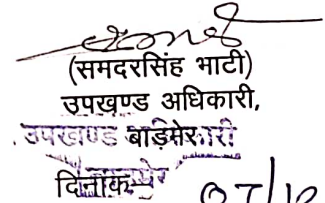 (समदरसिंह भाटी)
उपखण्ड अधिकारी,
उपखण्ड बाड़मेर
दिनांक
07/10